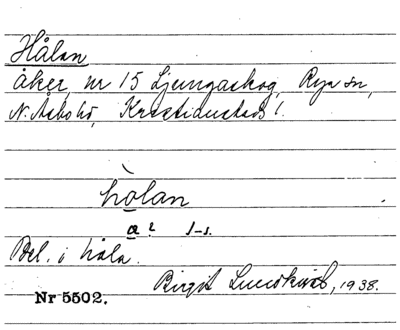 Hålan
åker, nr 15 Ljungaskog, Rya sn,
N. Åsbo hd, Kristianstads l.
hòlan
a ? s-s.
Bel. i håla.
Birgit Lundkvist, 1938.
Nr 5502.